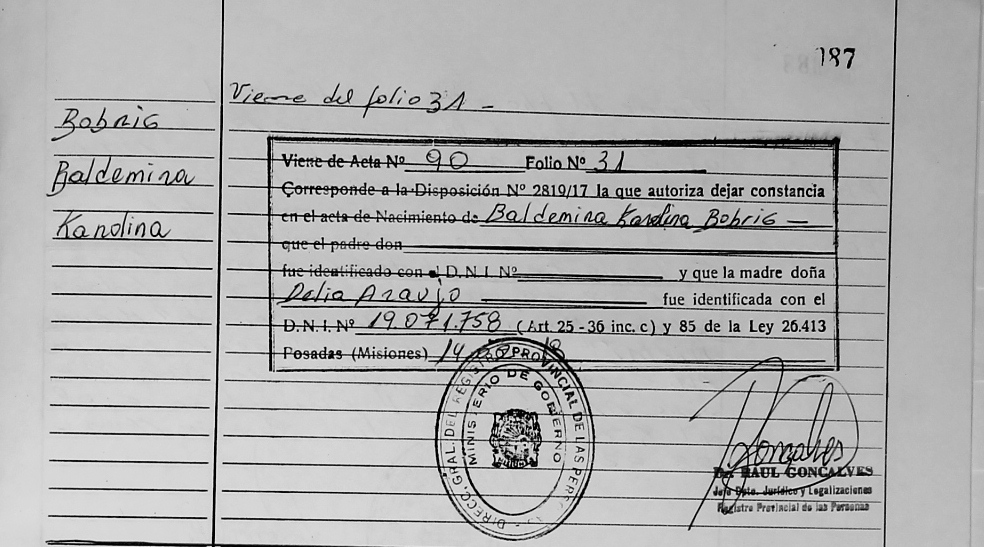 187
Viene del folio 31 -
Bobric
Baldemina
Karolina
Viene de Acta Nº 90 Folio Nº 31
Corresponde a la Disposición Nº 2819/17 la que autoriza dejar constancia
en el acta de Nacimiento de Baldemina Karolina Bobric —
que el padre don
fue identificado con el D.N.I. Nº y que la madre doña
Delia Araujo fue identificada con el
D.N.I. Nº 19.071.758 (Art. 25 - 36 inc. c) y 85 de la Ley 26.413
Posadas (Misiones) 14
DIRECC. GRAL. DEL REGISTRO PROVINCIAL DE LAS PERSONAS
MINISTERIO DE GOBIERNO
Goncalves
Dr. RAUL GONCALVES
Jefe Dpto. Jurídico y Legalizaciones
Registro Provincial de las Personas